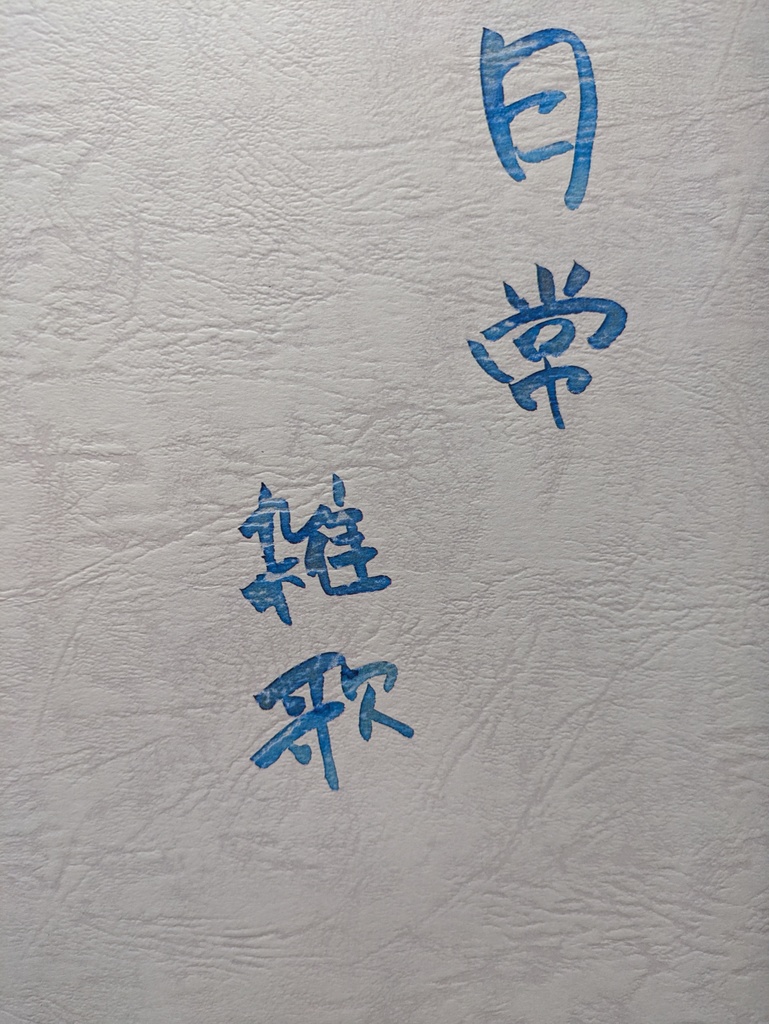 日常
雑歌